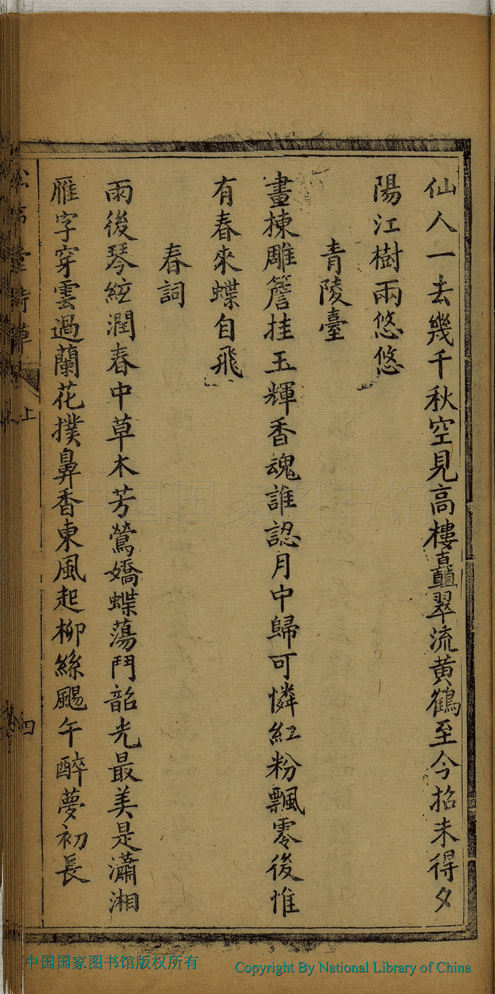 仙人一去幾千秋空見高樓矗翠流黄鶴至今招未得夕
陽江樹兩悠悠
青陵臺
畫棟雕簷挂玉輝香魂誰認月中歸可憐紅粉飄零後惟
有春來蝶自飛
春詞
雨後琴絃潤春中草木芳鶯嬌蝶蕩鬥韶光最美是瀟湘
雁字穿雲過蘭花撲鼻香東風起柳絲颺午醉夢初長
上
四
中国国家图书馆版权所有
Copyright By National Library of China